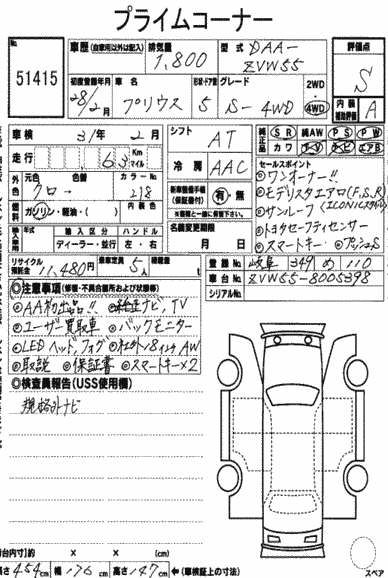 プライムコーナー
No.
51415
車歴 (自家用以外は記入)
排気量
1,800
型式
DAA-
ZVW55
評価点
S
初度登録年月
28/2月
車名
プリウス
ドア・形状
5
グレード
S-4WD
2WD
4WD
内装
補助評価
A
車検
31年 2月
シフト
AT
純正品
SR 純AW PS PW
カワ TV ナビ エアB
走行
63 Km
マイル
冷房
AAC
セールスポイント
◎ワンオーナー!!
◎モデリスタエアロ(F.S.R)
(ICONICスタイル)
◎サンルーフ
◎トヨタセーフティセンサー
◎スマートキー ◎プッシュS
外色
元色
クロー
色替
カラーNo.
218
新車整備手帳
(保証書付)
有・無
※後日と一緒に保管して下さい
燃料
ガソリン・軽油・( )
内装色
輸入車
入年
年
輸入区分
ディーラー・並行
ハンドル
左・右
名義変更期限
月 日
リサイクル
預託金
11,480円
乗車定員
5人
積載量
t
登録No
岐阜 349 め 110
車台No
ZVW55-8005398
シリアルNo.
◎注意事項(修復・不具合箇所および状態等)
◎AA初出品!! ◎純正ナビ,TV
◎ユーザー買取車 ◎バックモニター
◎LEDヘッド,フォグ ◎社外18インチAW
◎取説 ◎保証書 ◎スマートキー×2
◎検査員報告(USS使用欄)
規格外ナビ
荷台内寸)約 × × (cm)
長さ 454 (cm) 幅 176 (cm) 高さ 147 (cm) ←(車検証上の寸法)
スペア